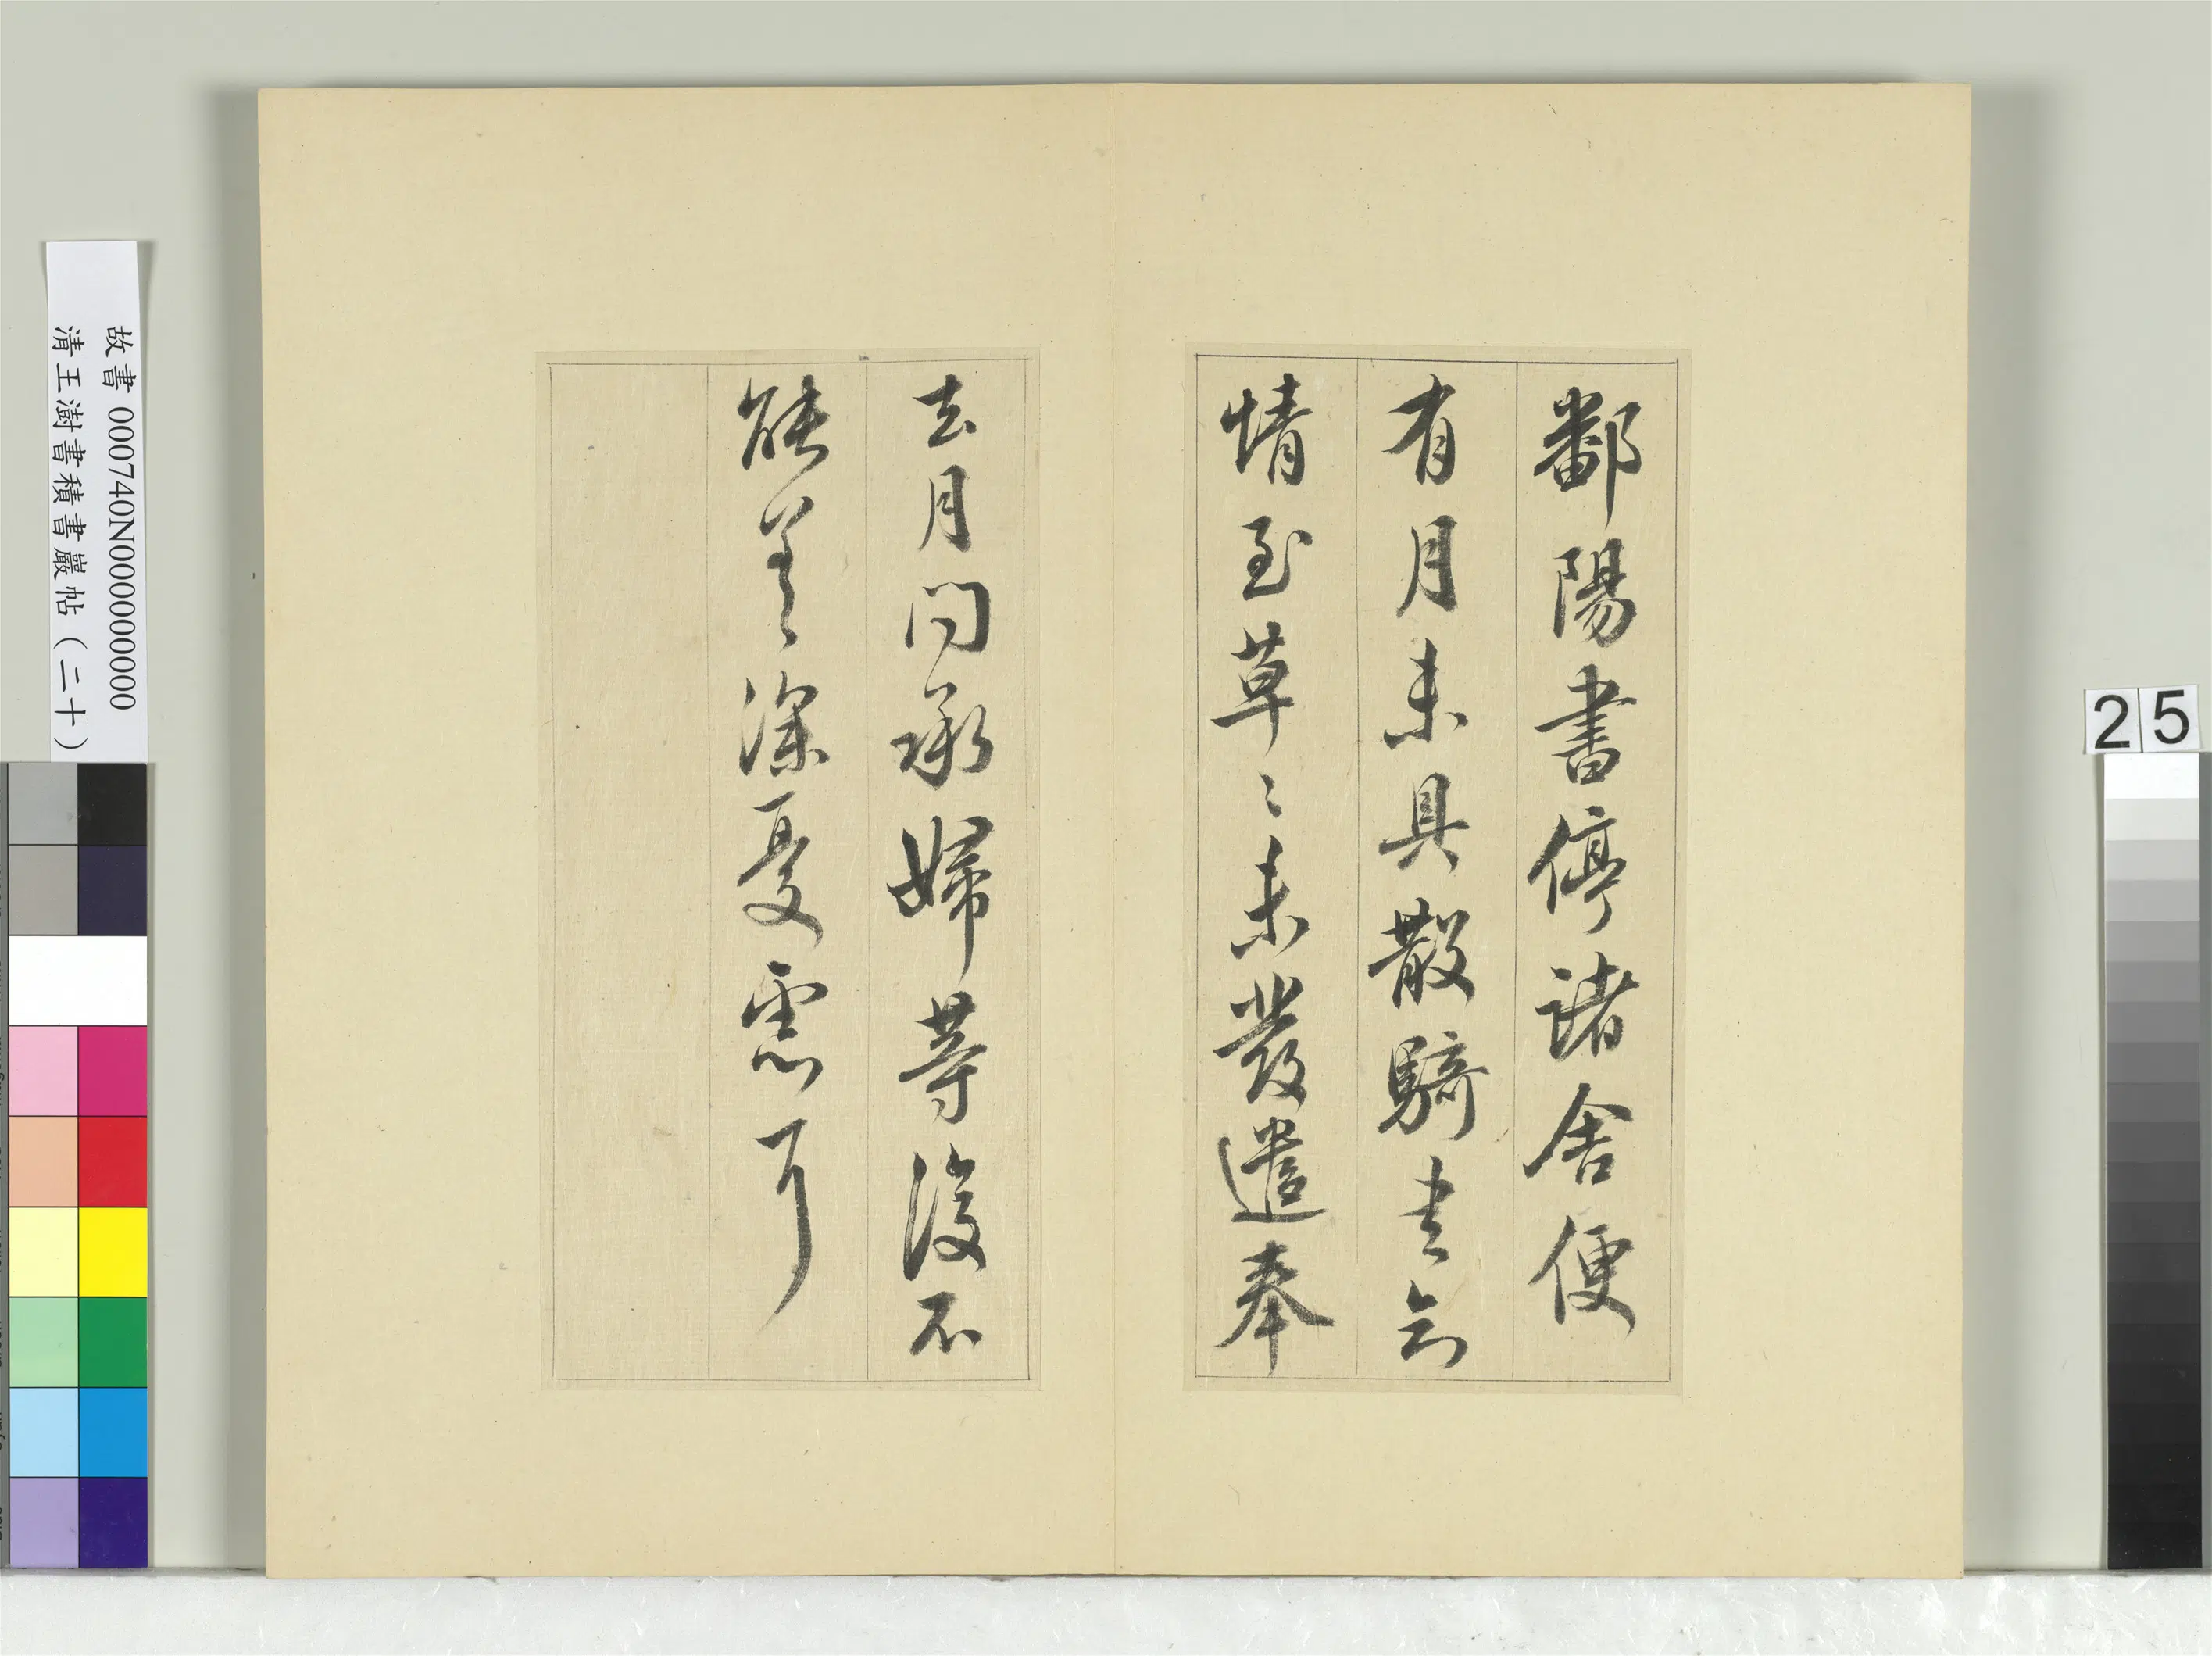 鄱陽書停諸舍便
有月未具散騎
情至草〻未發遣奉
去月問承婦等復不
能差深憂慮耳
故書 000740N000000000
清王澍書積書巖帖（二十）
25